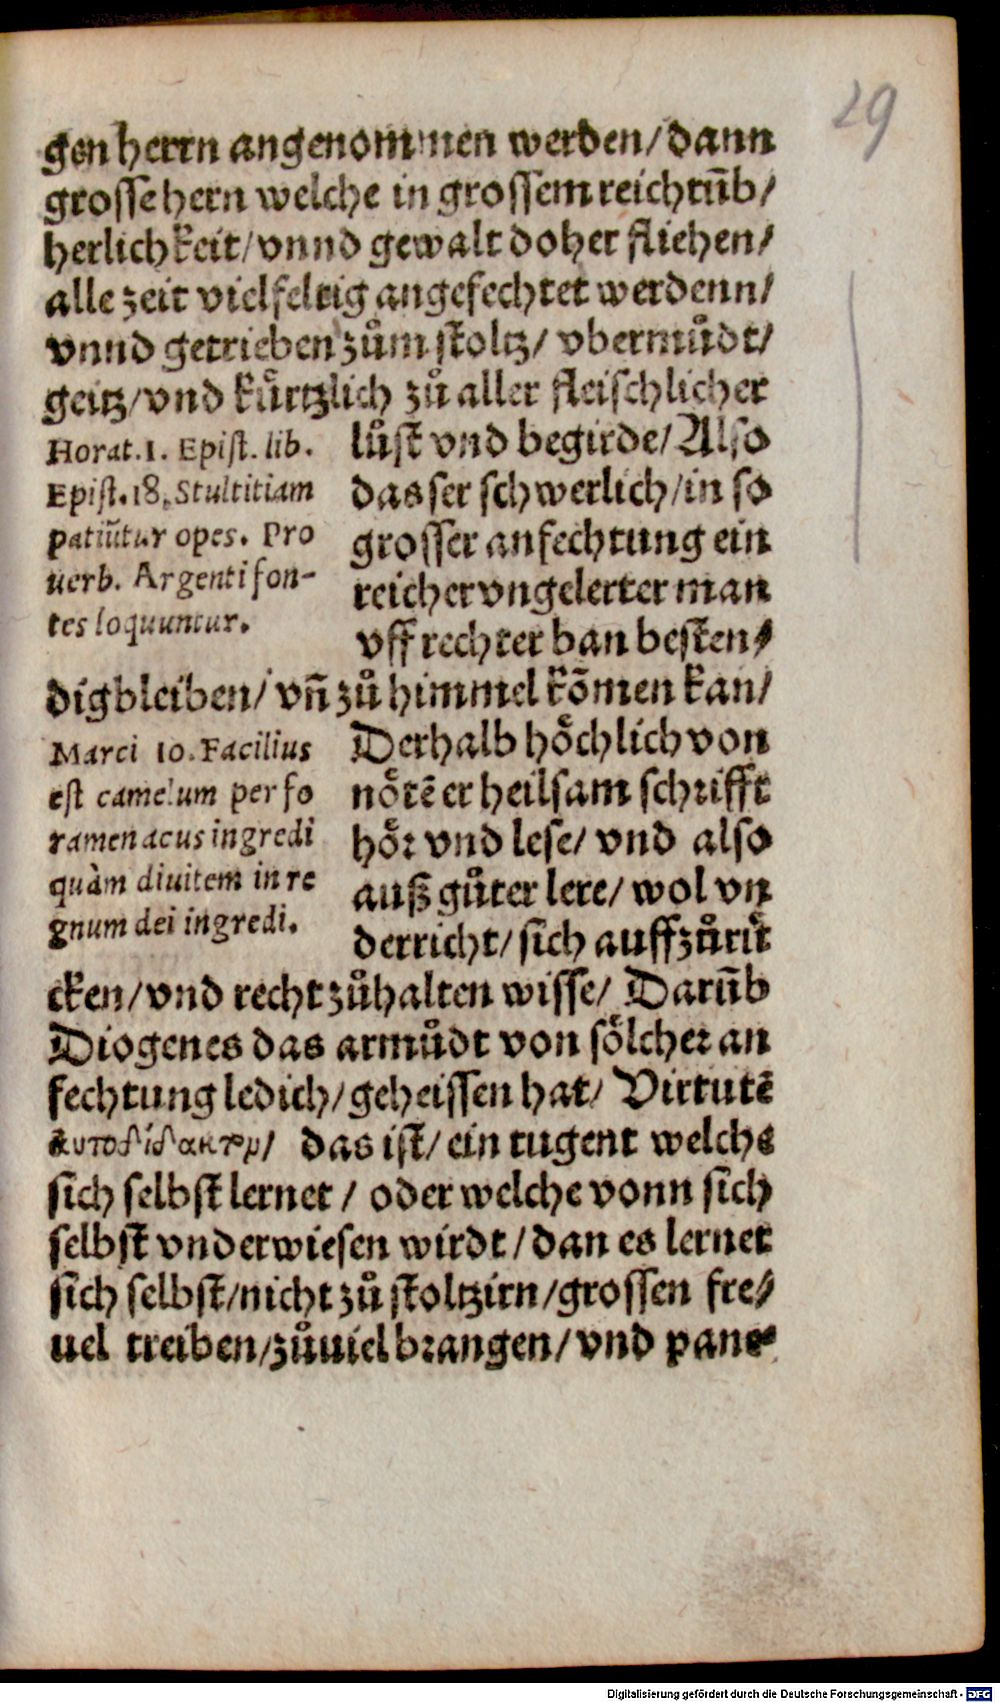 29
gen herrn angenommen werden/dann
grosse hern welche in grossem reichtūb/
herlichkeit/vnnd gewalt doher fliehen/
alle zeit vielfeltig angefechtet werdenn/
vnnd getrieben zům stoltz/ vbermůdt/
geitz/vnd kürtzlich zů aller fleischlicher
lůst vnd begirde/ Also
das ser schwerlich/in so
grosser anfechtung ein
reicher vngelerter man
vff rechter ban besten/
Horat. 1. Epist. lib.
Epist. 18. Stultitiam
patiūtur opes. Pro
uerb. Argenti fon-
tes loquuntur.
dig bleiben/ vn̄ zů himmel kōmen kan/
Derhalb höchlich von
nötē er heilsam schrifft
hör vnd lese/ vnd also
auß gůter lere/ wol vn
derricht/ sich auffzůrü
Marci 10. Facilius
est camelum per fo
ramen acus ingredi
quàm diuitem in re
gnum dei ingredi.
cken/vnd recht zůhalten wisse/ Darūb
Diogenes das armůdt von sölcher an
fechtung ledich/geheissen hat/ Virtutē
αυτοδίδακτον/ das ist/ ein tugent welche
sich selbst lernet / oder welche vonn sich
selbst vnderwiesen wirdt/dan es lernet
sich selbst/nicht zů stoltzirn/grossen fre/
uel treiben/zůuiel brangen/vnd pane
Digitalisierung gefördert durch die Deutsche Forschungsgemeinschaft - DFG